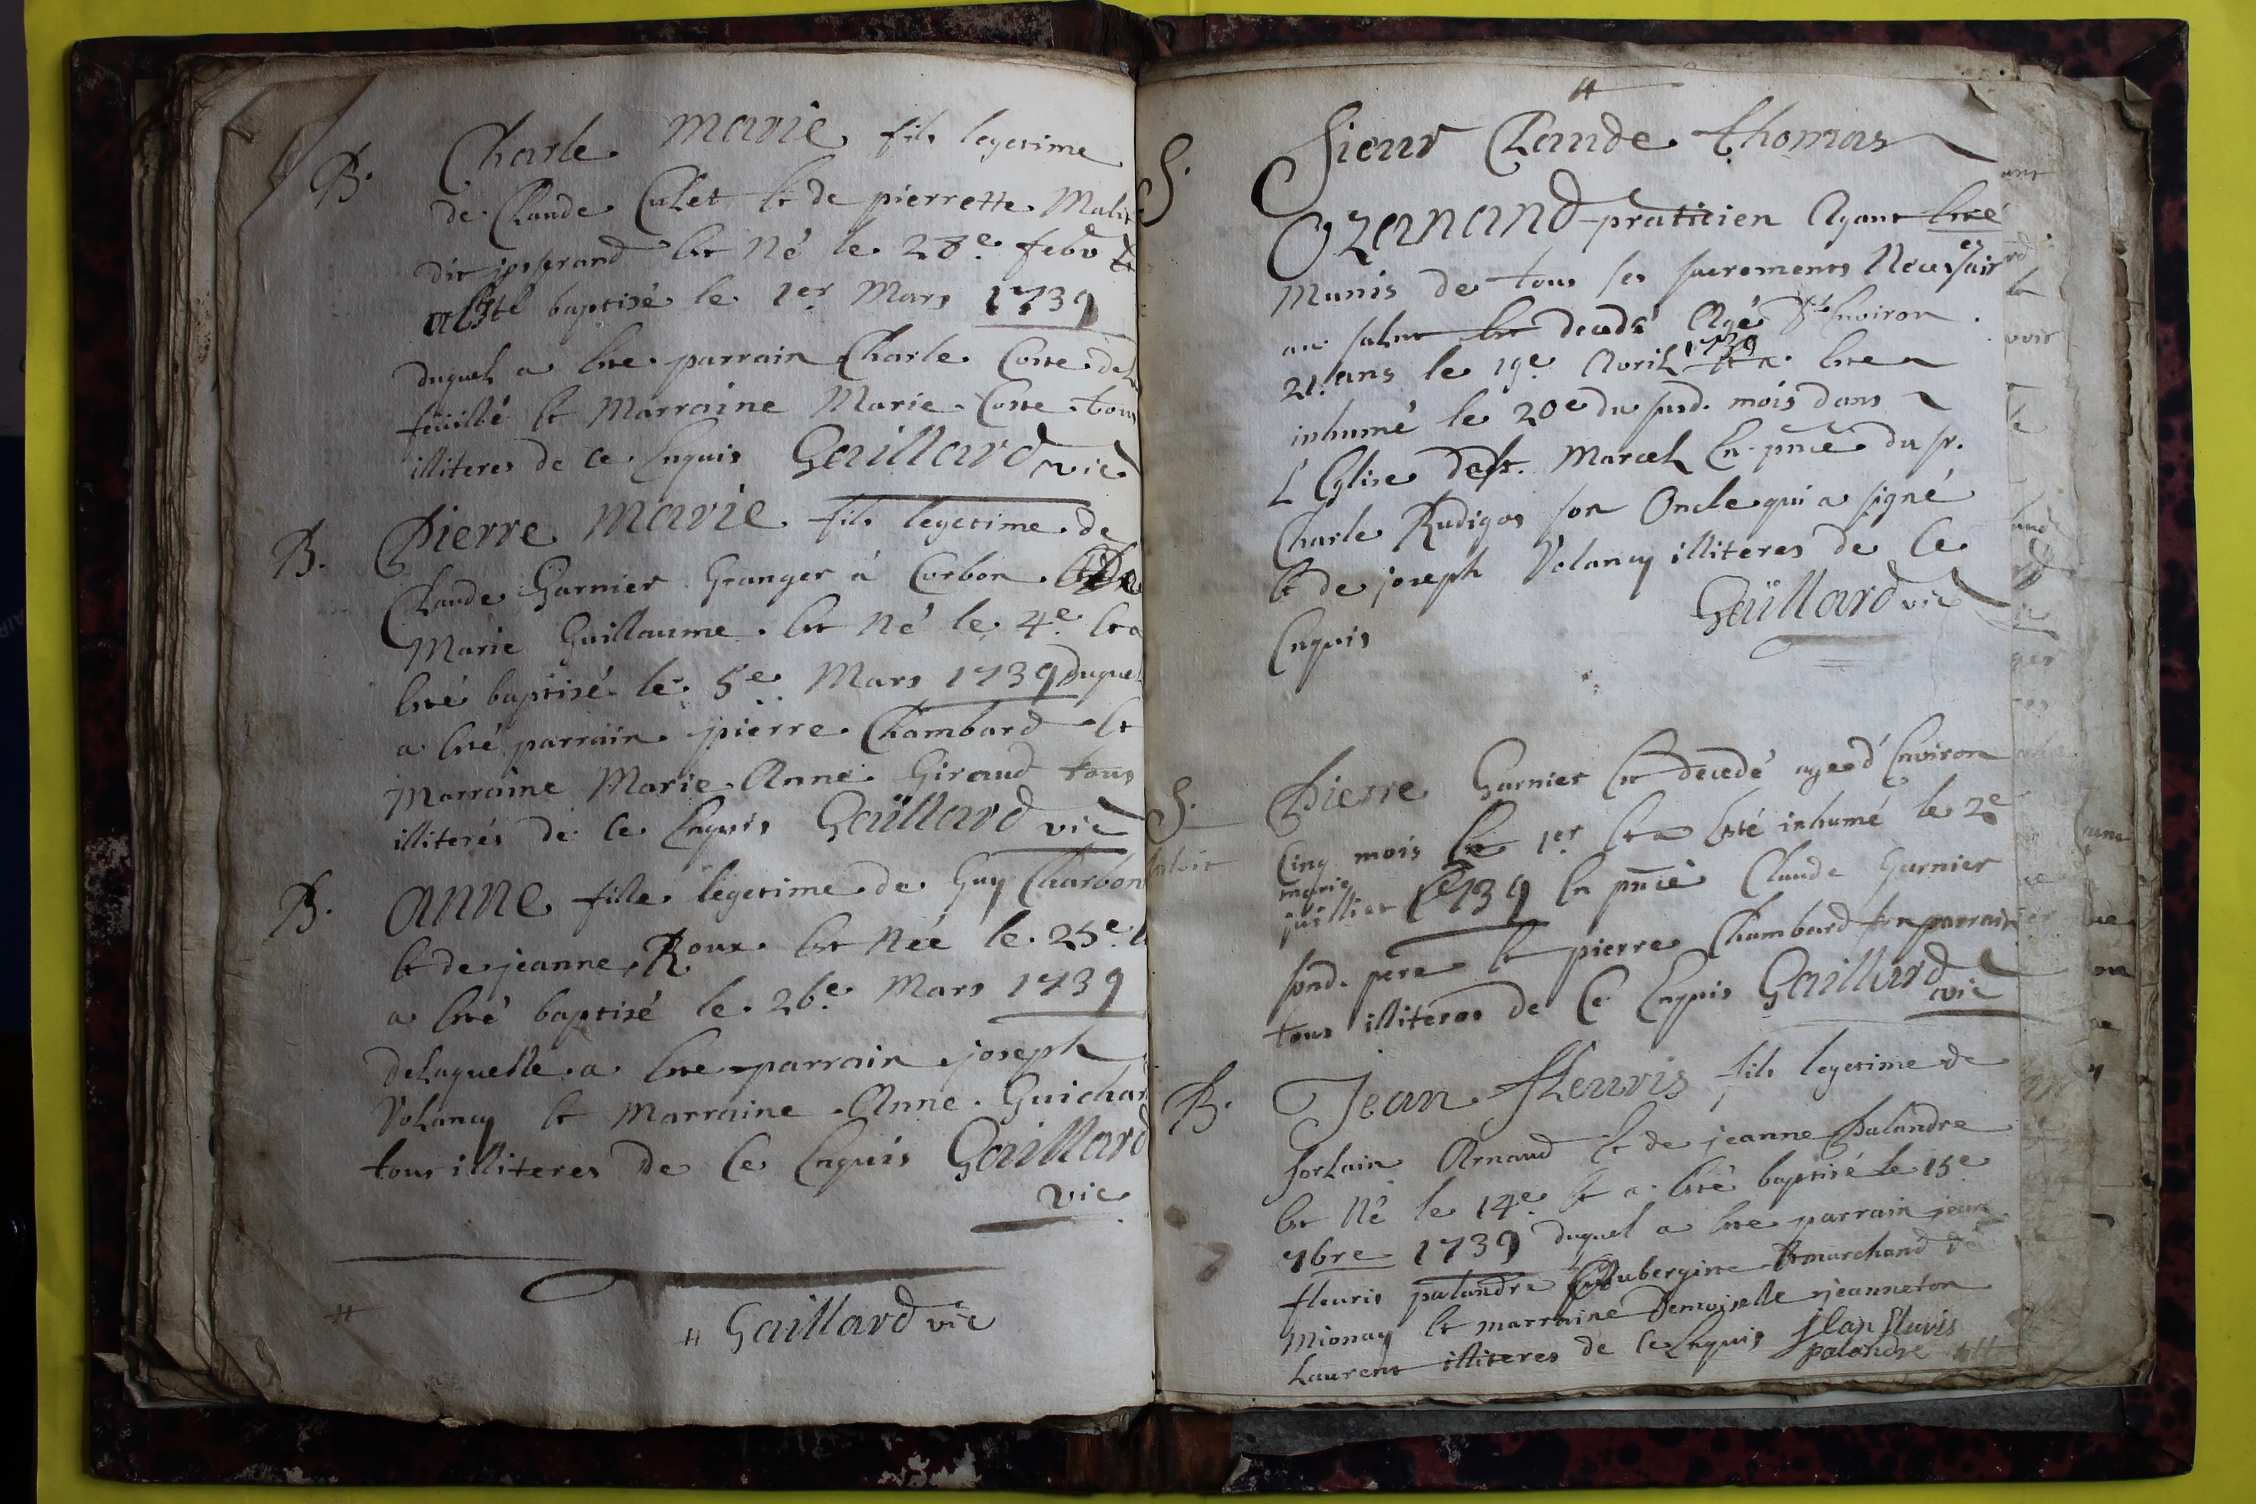 B. Charle Marie fils legetime
de Claude Culet et de pierrette Malit
dit josserand est Né le 28e febv et
a esté baptisé le 1er Mars 1739
duquel a ete parrain Charle Coste del
feüillé et Marraine Marie Coste tous
illiteres de ce Enquis Gaillard vic
B. Pierre Marie fils legetime de
Claude Garnier Granger á Corbon et De
Marie Guillaume est Né le 4e et a
eté baptisé le 5e Mars 1739 duquel
a eté parrain pierre Chambard et
Marraine Marie Anne Giraud tous
illiterés de ce Enquis Gaillard vic
B. Anne fille legetime de Guy Charbon
et de jeanne Roux est Née le 25e et
a eté baptisé le 26e Mars 1739
delaquelle a ete parrain joseph
Volancy et Marraine Anne Guichar
tous illiteres de Ce Enquis Gaillard
vic
Gaillard vic
S. Sieur Claude Thomas
Ozanand pratitien Ayant eté
Munis de tous ses sacrements Necessaires
au salut est decedé Agé d'Environ
21 ans le 19e Avril 1739 et a ete
inhumé le 20e du susd. mois dans
L'Eglise de st. Marcel En pnce du sr.
Charle Rudigos son Oncle qui a signé
et de joseph Volancy illiteres de Ce
Enquis Gaillard vic
S. Pierre Garnier est decedé agé d'Environ
Cinq mois le 1er et a eté inhumé le 2e
marie
juillet 1739 En pnce Claude Garnier
sond. pere et pierre Chambard son parrain
tous illiteres de Ce Enquis Gaillard
vic
B. Jean Fleuris fils legetime de
forlain Arnaud et de jeanne Palandre
est Né le 14e et a eté baptisé le 15e
7bre 1739 duquel a ete parrain jean
fleuris palandre Aubergiste et marchand de
Mionay et marraine Demoiselle jeanneton
Laurent illiteres de ce Enquis jean fleuris
palandre